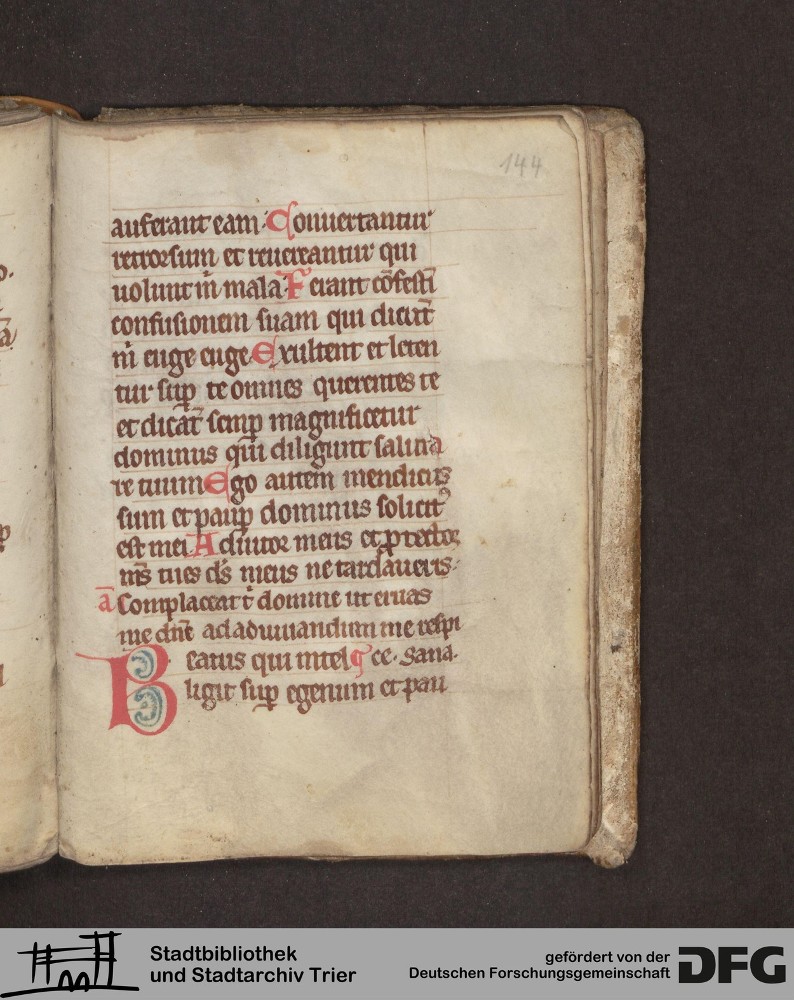 144
auferant eam· Conuertantur
retrorsum et reuereantur qui
uolunt m̄ mala· Ferant cōfestī
confusionem suam qui dicūt
m̄ euge euge Exultent et leten
tur suꝑ te omnes querentes te
et dicāt semꝑ magnificetur
dominus qui diligunt saluta
re tuum Ego autem mendicus
sum et pauꝑ dominus solicitꝰ
est mei· Adiutor meus et ꝓtector
ms̄ tu es ds̄ meus ne tardaueris·
a̅ Complaceat t̄ domine ut eruas
me dn̄e ad adiuuandum me respi
Beatus qui intel ce· Sana·
ligit suꝑ egenum et pau
Stadtbibliothek
und Stadtarchiv Trier
gefördert von der
Deutschen Forschungsgemeinschaft
DFG